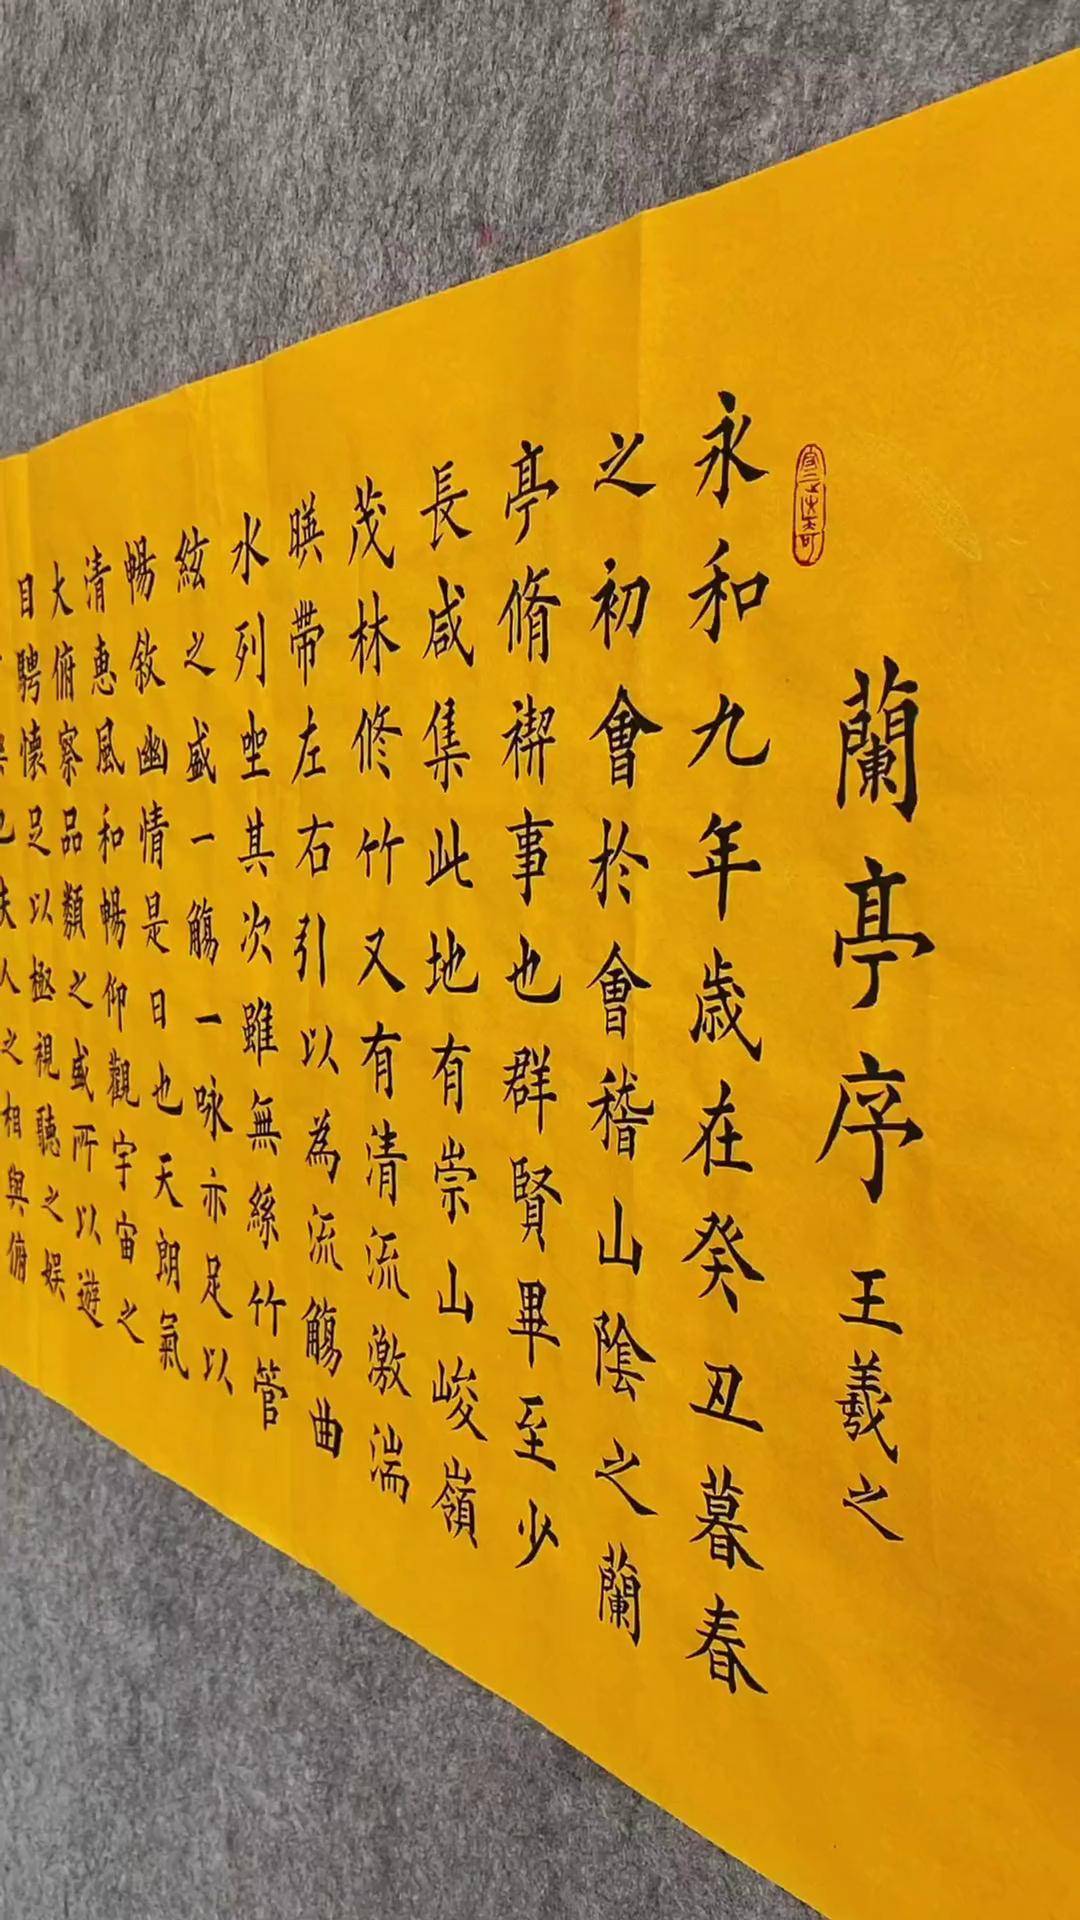 蘭亭序 王羲之
永和九年歲在癸丑暮春
之初會於會稽山陰之蘭
亭脩禊事也群賢畢至少
長咸集此地有崇山峻嶺
茂林修竹又有清流激湍
暎帶左右引以為流觴曲
水列坐其次雖無絲竹管
絃之盛一觴一咏亦足以
暢敘幽情是日也天朗氣
清惠風和暢仰觀宇宙之
大俯察品類之盛所以遊
目騁懷足以極視聽之娛
也夫人之相與俯